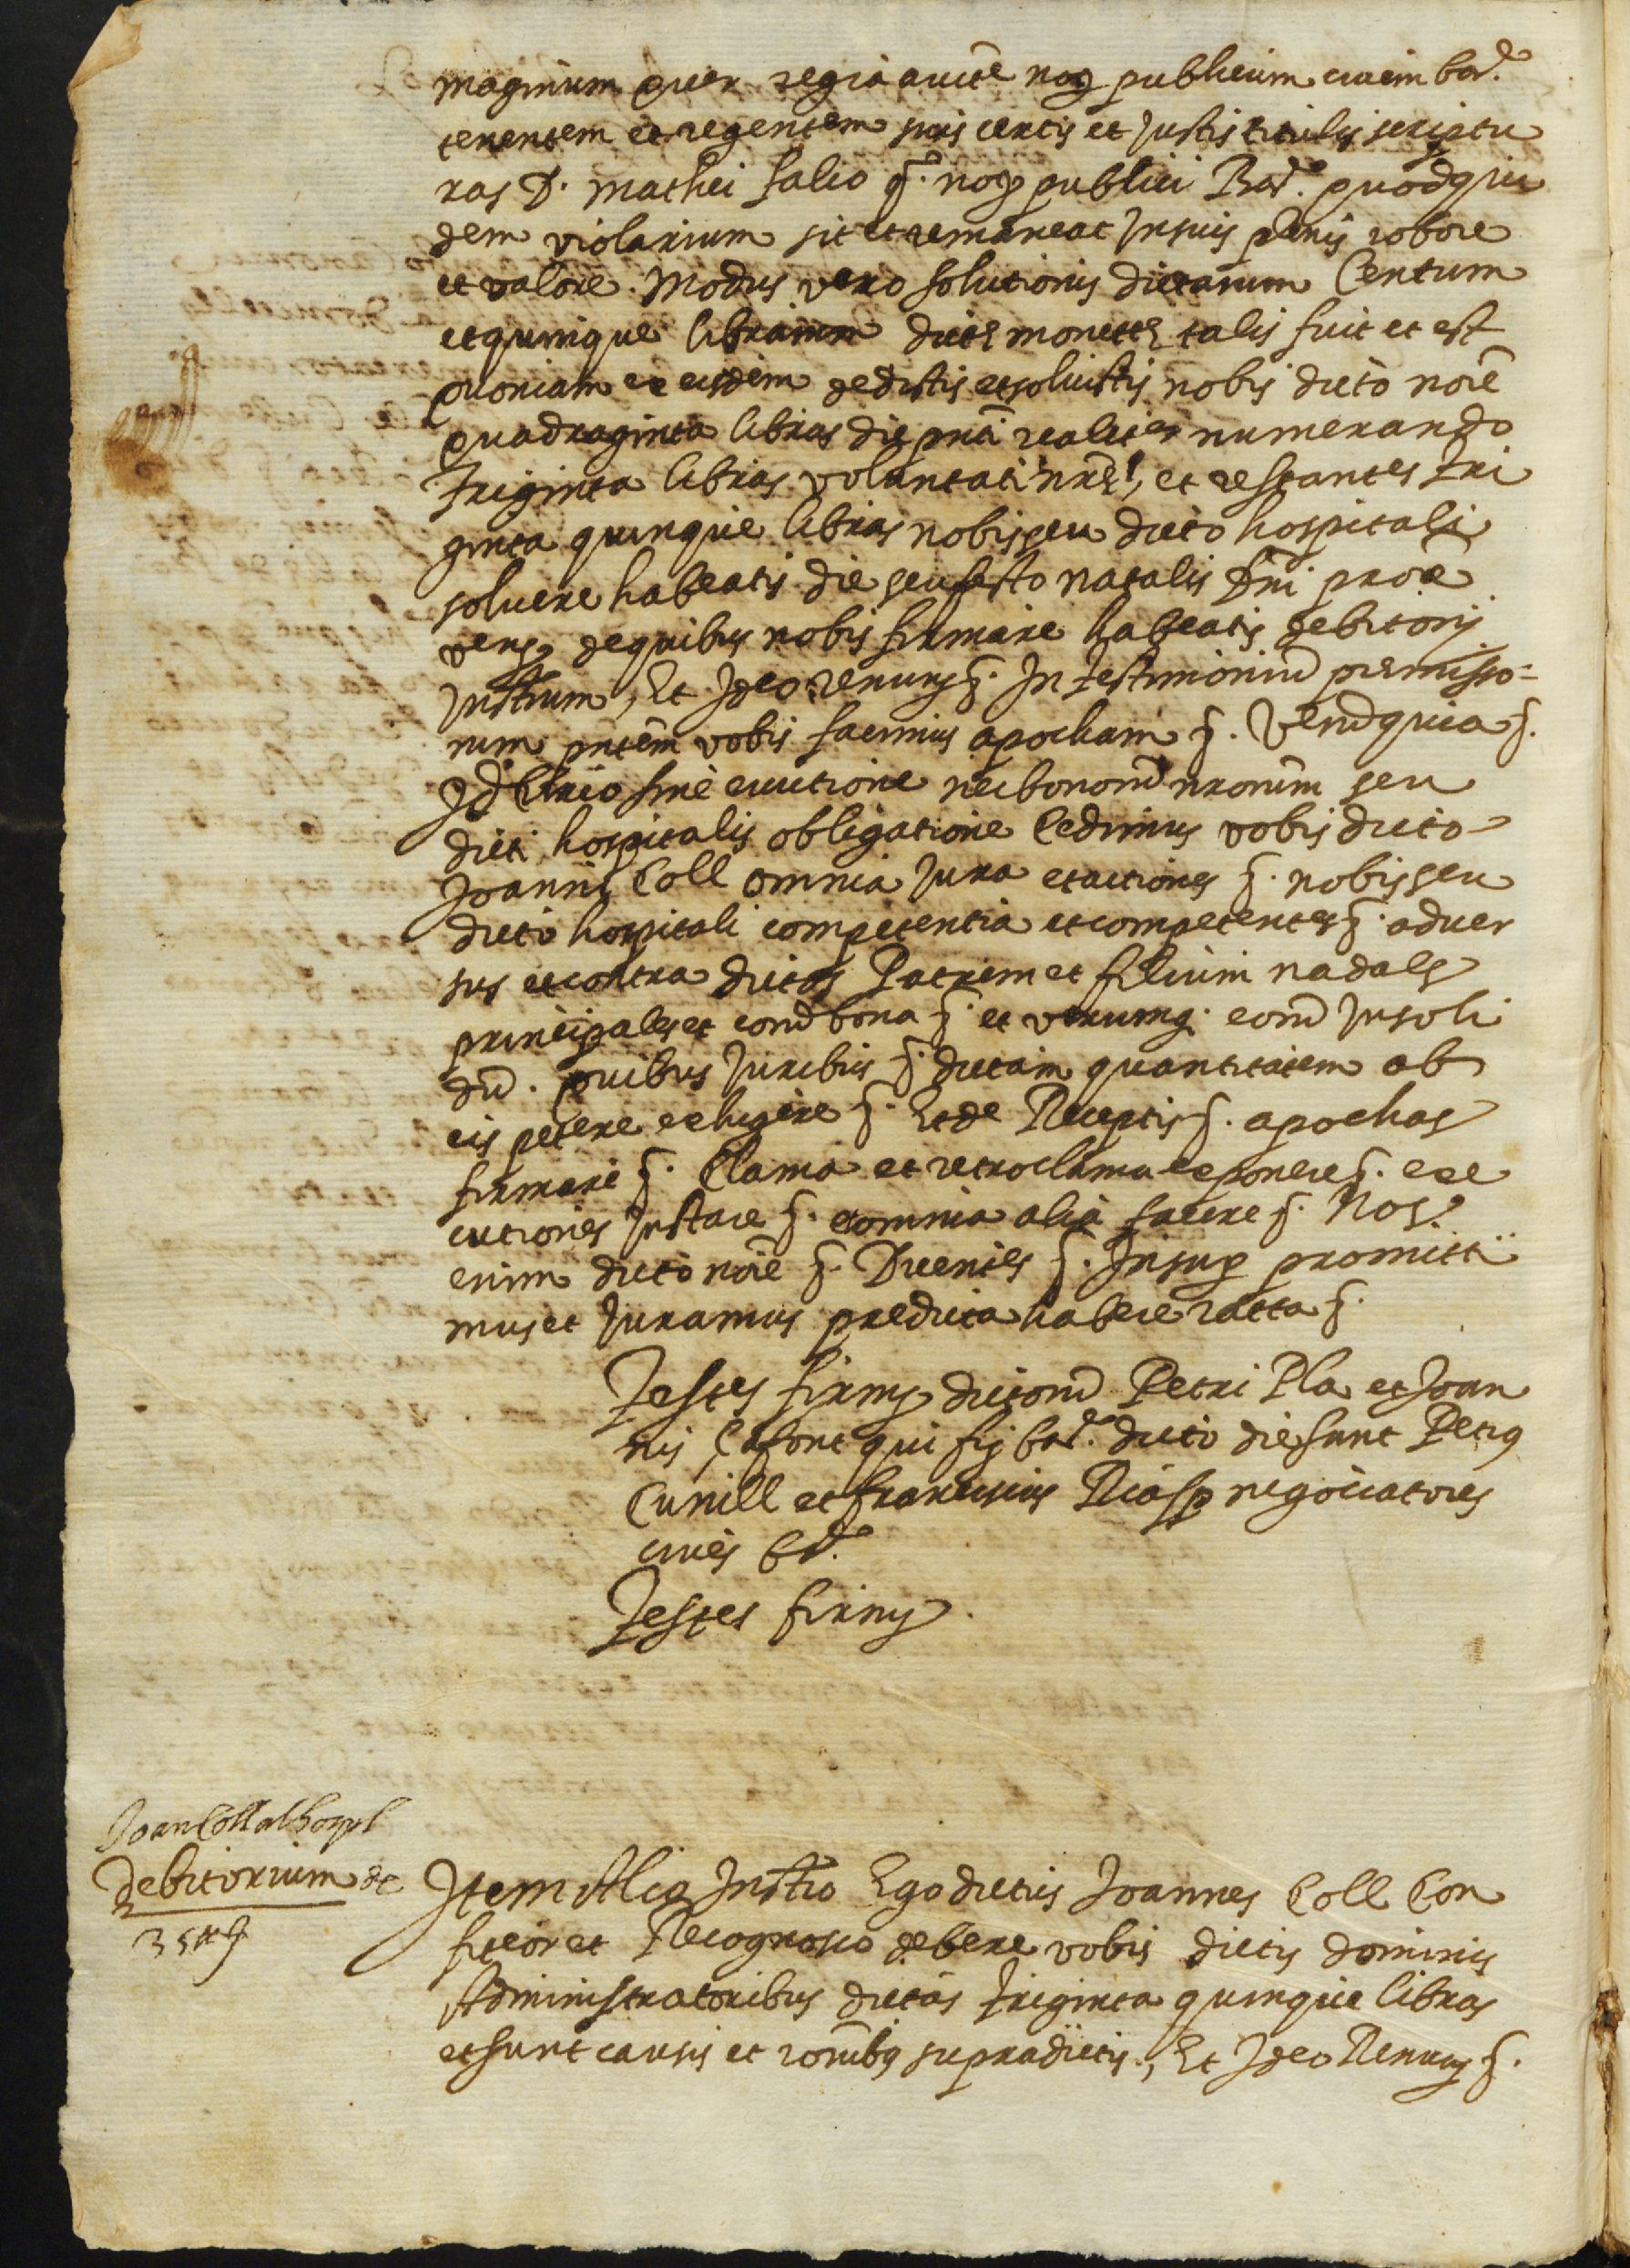 maginum quer regia aucte noṽ publicum civem bar.ᵉ
tenentem et regentem suis certis et Justis titulis scriptu
ras D. Mathei Salio q.º noṽ publici Bar.ᵉ quodqui
dem violarium sit et remaneat Insuis plenis robore
et valore. Modus vero solutionis dictarum Centum
et quinque librarum dicte monette talis fuit et est
quoniam ex eisdem dedistis et solvistis nobis dicto noīe
quadraginta libras die pnti realiter numerando
Triginta libras voluntati nrē, et restantes Tri
ginta quinque libras nobis seu dicto hospitali
solvere habeatis die seu festo natalis Dñi proē
vens. de quibus nobis firmare habeatis debitorij
Instrum, Et Ideo renuns ꝭ. In Testimoniũ premisso=
rum pntēm vobis facimus apocham ꝭ. Verũ quia ꝭ.
Id Circo sine evictione nec bonorũ nrorum seu
dicti hospitalis obligatione Cedimus vobis dicto
Joanni Coll omnia Jura et actiones ꝭ. nobis seu
dicto hospitali competentia et competentes ꝭ. adver
sus et contra dictos Patrem et filium nadals
principales et eorũ bona ꝭ. et utrumq. eorũ Insoli
dũ. quibus Juribus ꝭ. dictam quantitatem ab
eis petere exhigere ꝭ. Et de Receptis ꝭ. apochas
firmare ꝭ. Clama et retroclama exponere ꝭ. exe
cutiones Instare ꝭ. et omnia alia facere ꝭ. Nos
enim dicto noīe ꝭ. Dicentes ꝭ. Insup promitti
mus et Juramus predicta habere ratta ꝭ.
Testes firmę dictorũ Petri Pla et Joan
nis Çafont qui fiȷ bar.ᵉ dicto die sunt Petrus
Cunill et franciscus Riasp negociatores
cives bar.ᵉ
Testes firmę.
Joan Coll al hospl
Debitorium de
35 ₶ ꝭ
Item Alio Instro Ego dictus Joannes Coll Con
fiteor et Recognosco debere vobis dictis dominis
Administratoribus dictas Triginta quinque libras
et sunt causis et ronibꝰ supradictis., Et Ideo Renuns ꝭ.